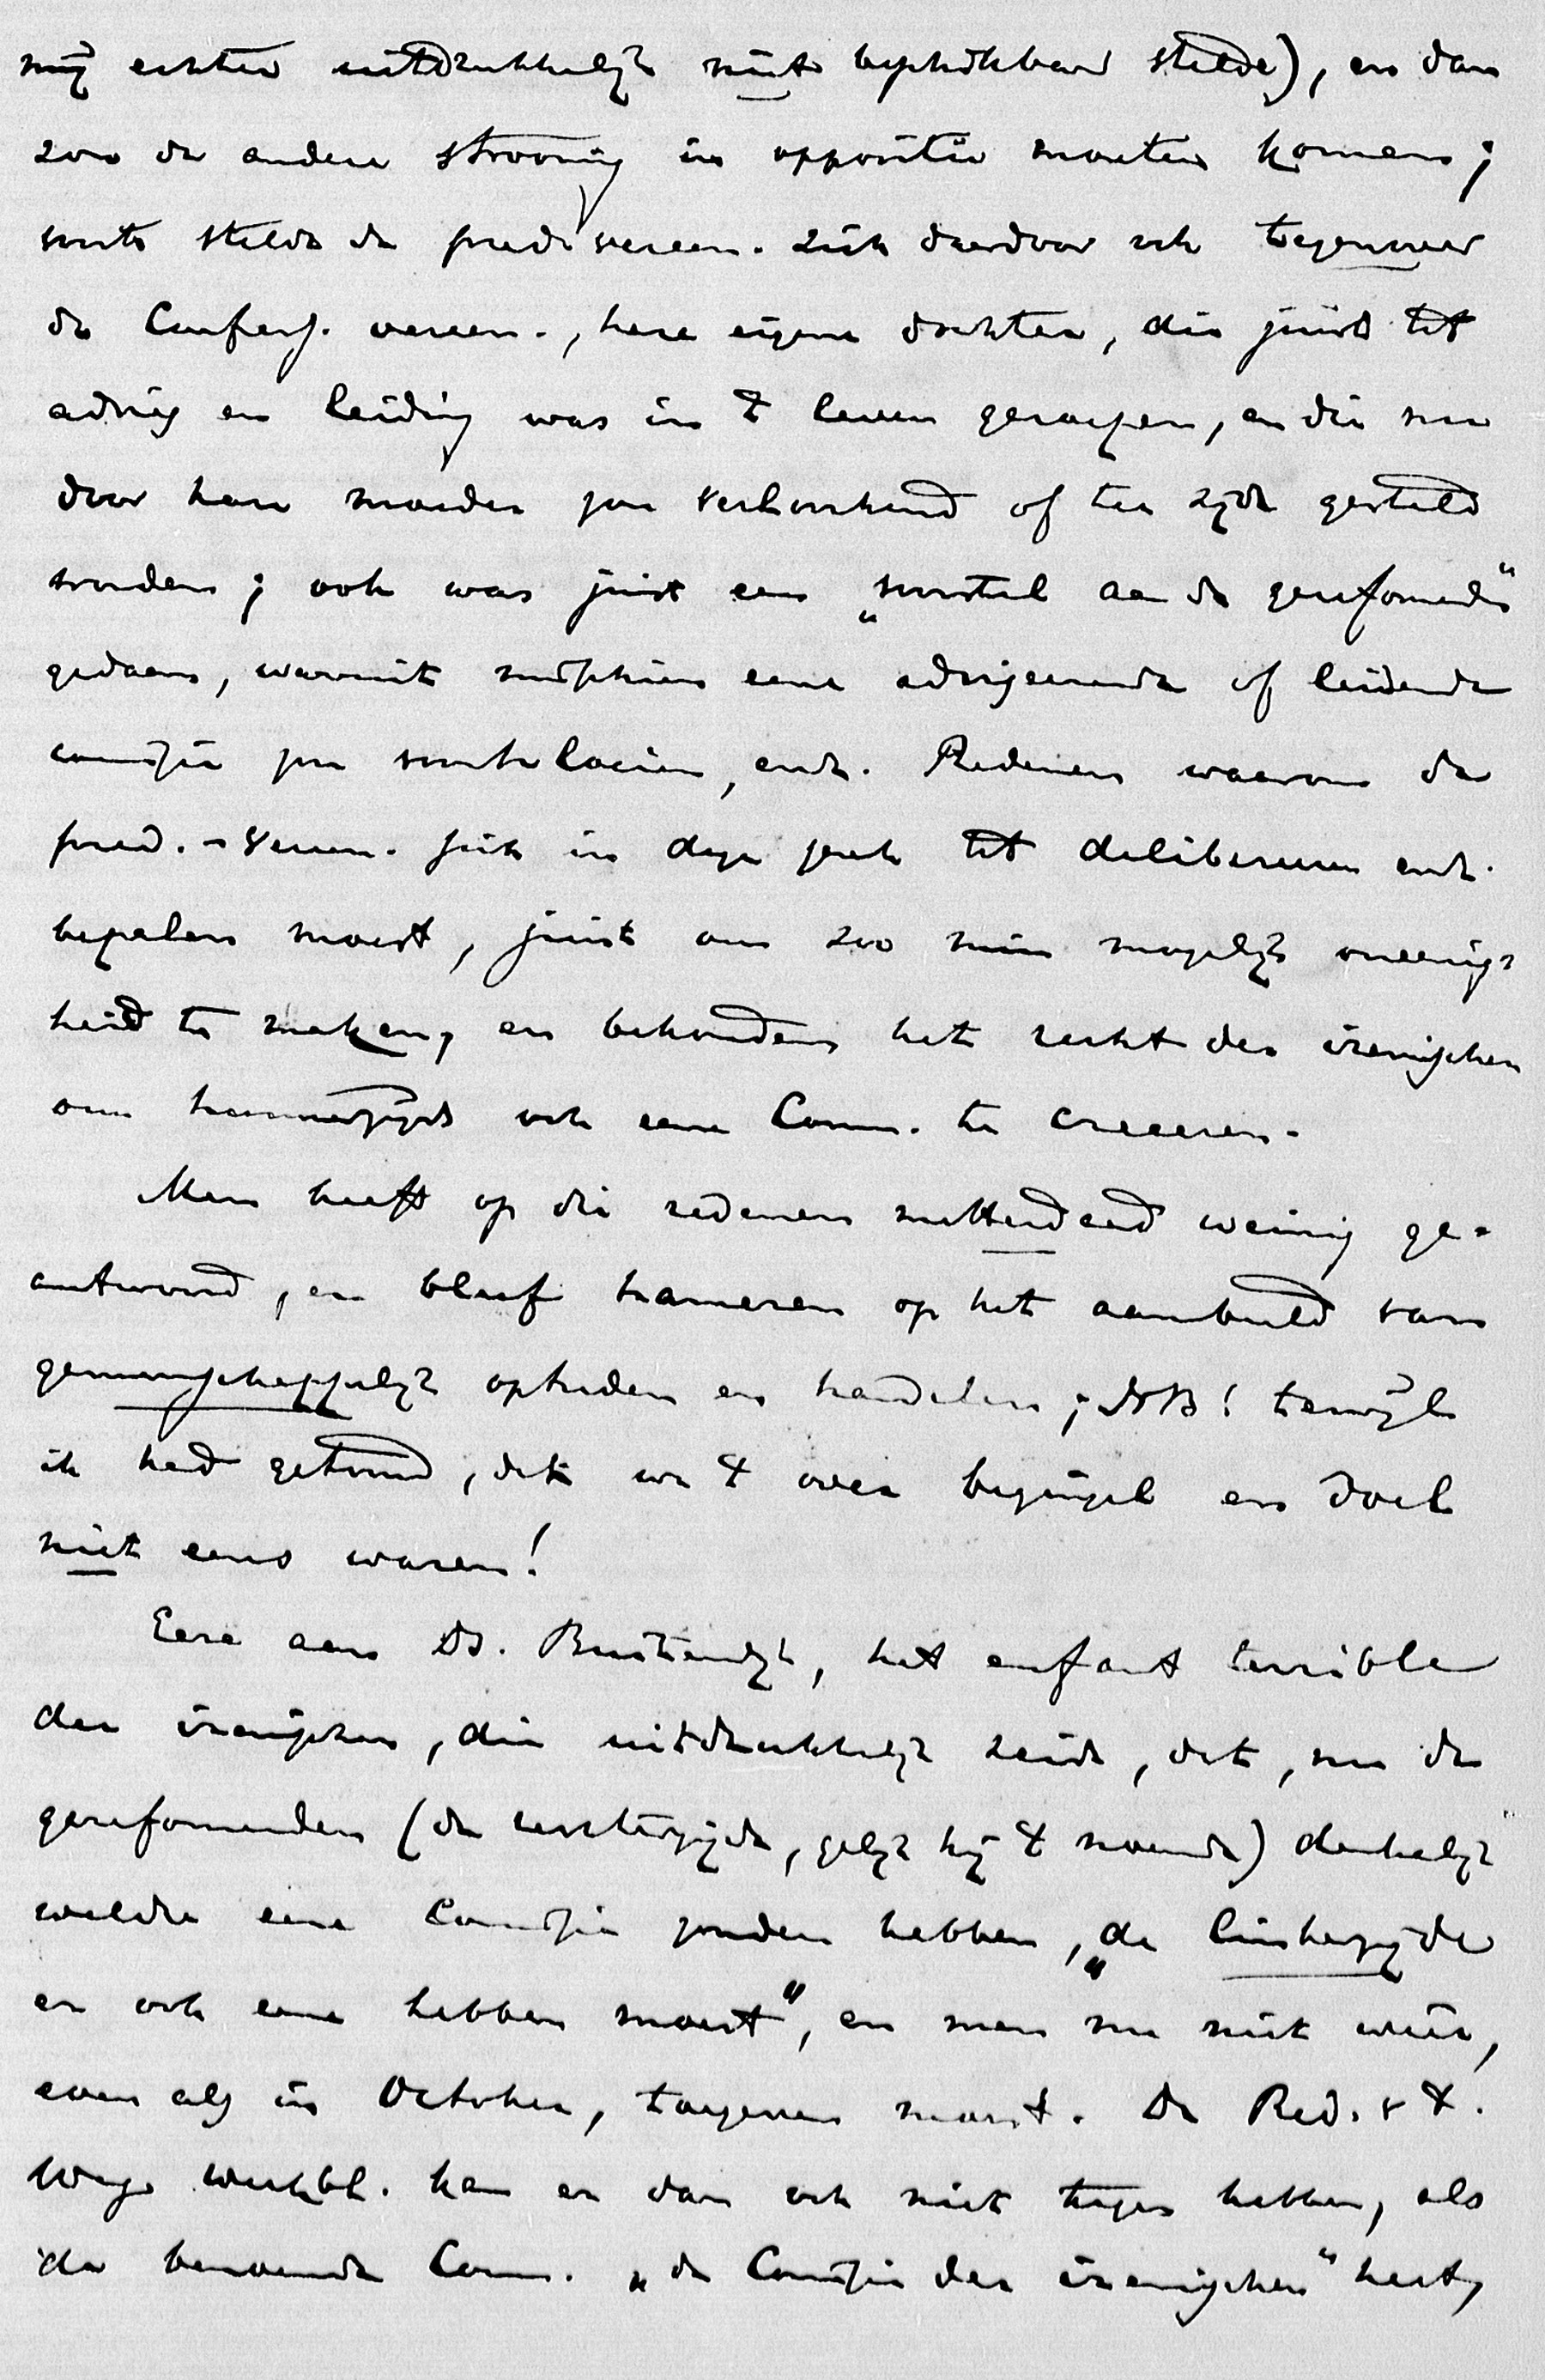 mij echter uitdrukkelijk niet beschikbaar stelde), en dan
zou de andere strooming in oppositie moeten komen;
voorts stelde de pred. vereen. zich daardoor ook tegenover
de Confess. vereen., hare eigene dochter, die juist tot
advies en leiding was in 't leven geroepen, en die nu
door hare moeder zou verloochend of ter zijde gesteld
worden; ook was juist een „voorstel aan de gereformeerden”
gedaan, waaruit misschien eene adviseerende of leidende
commissie zou voortvloeien, end. Redenen waarom de
pred.-vereen. zich in deze zaak tot delibereren end.
bepalen moest, juist om zoo min mogelijk oneenig-
heid te maken, en behoudens het recht der irenischen
om hunnerzijds ook eene Comm. te creeeren.
Men heeft op die redenen metterdaad weinig ge-
antwoord, en bleef hameren op het aanbeeld van
gemeenschappelijk optreden en handelen; NB! terwijl
ik had getoond, dat we 't over beginsel en doel
niet eens waren!
Eere aan Ds. Buitendijk, het enfant terrible
der irenischen, die uitdrukkelijk zeide, dat, nu de
gereformeerden (de rechterzijde, gelijk hij 't noemde) denkelijk
weldra eene Commissie zouden hebben, „de linkerzijde
er ook eene hebben moest”, en men nu niet weer,
even als in October, toegeven moest. De Red. v 't.
Weekbl. kan er dan ook niet tegen hebben, als
de benoemde Comm. „de Commissie der irenischen” heet,